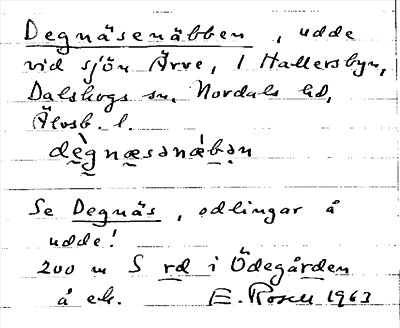 Degnäsenäbben, udde
vid sjön Ärve, 1 Hallersbyn,
Dalskogs sn, Nordals hd,
Älvsb. l.
dègnæsənǽbən
Se Degnäs, odlingar å
udde!
200 m S rd i Ödegården
å ek. E. Rosell 1963